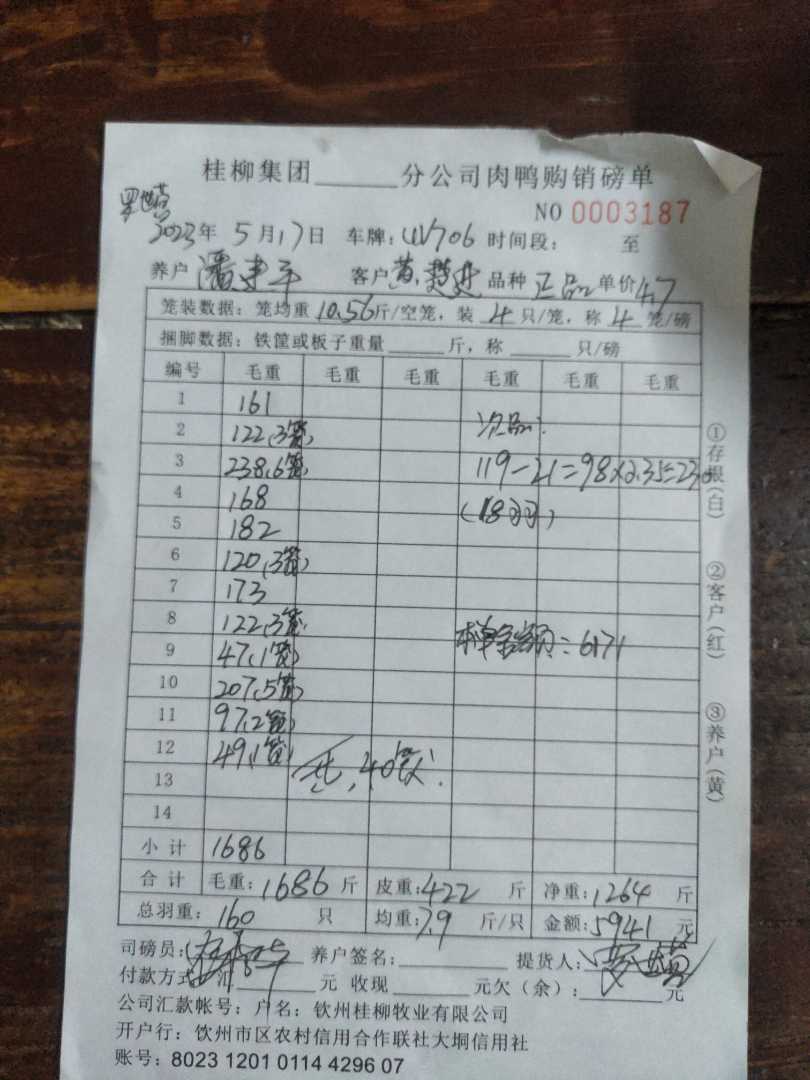 桂柳集团______分公司肉鸭购销磅单
NO 0003187
2023年 5月17日 车牌: UV706 时间段: 至
养户 潘 平 客户 黄 品种 正品 单价 4.7
笼装数据: 笼均重 10.56斤/空笼, 装 4 只/笼, 称 4 笼/磅
捆脚数据: 铁筐或板子重量______斤, 称______只/磅
编号 毛重 毛重 毛重 毛重 毛重 毛重
1 161
2 122,3笼,
3 238,6笼, 119-21=98×2.35=230
4 168 (18羽)
5 182
6 120,3笼,
7 173
8 122,3笼,
9 47,1笼) 本单金额:=6171
10 207,5笼)
11 97,2笼)
12 49,1笼) 40笼
13
14
小计 1686
合计 毛重:1686 斤 皮重:422 斤 净重:1264 斤
总羽重: 160 只 均重:7.9 斤/只 金额:5941 元
司磅员: 养户签名: 提货人:
付款方式: 元 收现______元欠(余):______元
公司汇款帐号: 户名: 钦州桂柳牧业有限公司
开户行: 钦州市区农村信用合作联社大垌信用社
账号: 8023 1201 0114 4296 07
①存根(白)
②客户(红)
③养户(黄)